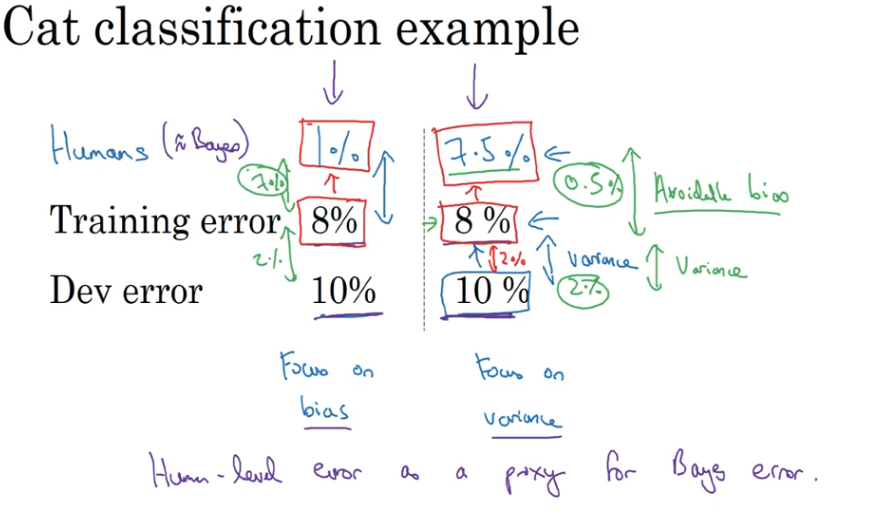 Cat classification example
Humans (≈ Bayes) 1% 7.5%
7% 0.5% Avoidable bias
Training error 8% 8 %
2% 2% Variance Variance
Dev error 10% 10 % 2%
Focus on bias
Focus on variance
Human-level error as a proxy for Bayes error.